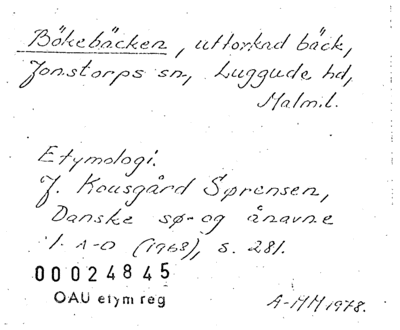 Bökebäcken, uttorkad bäck,
Jonstorps sn, Luggude hd,
Malm.l.
Etymologi:
J. Kousgård Sørensen,
Danske sø- og ånavne
1. A-D (1968), s. 281.
00024845
OAU etym reg
A-MM 1978.